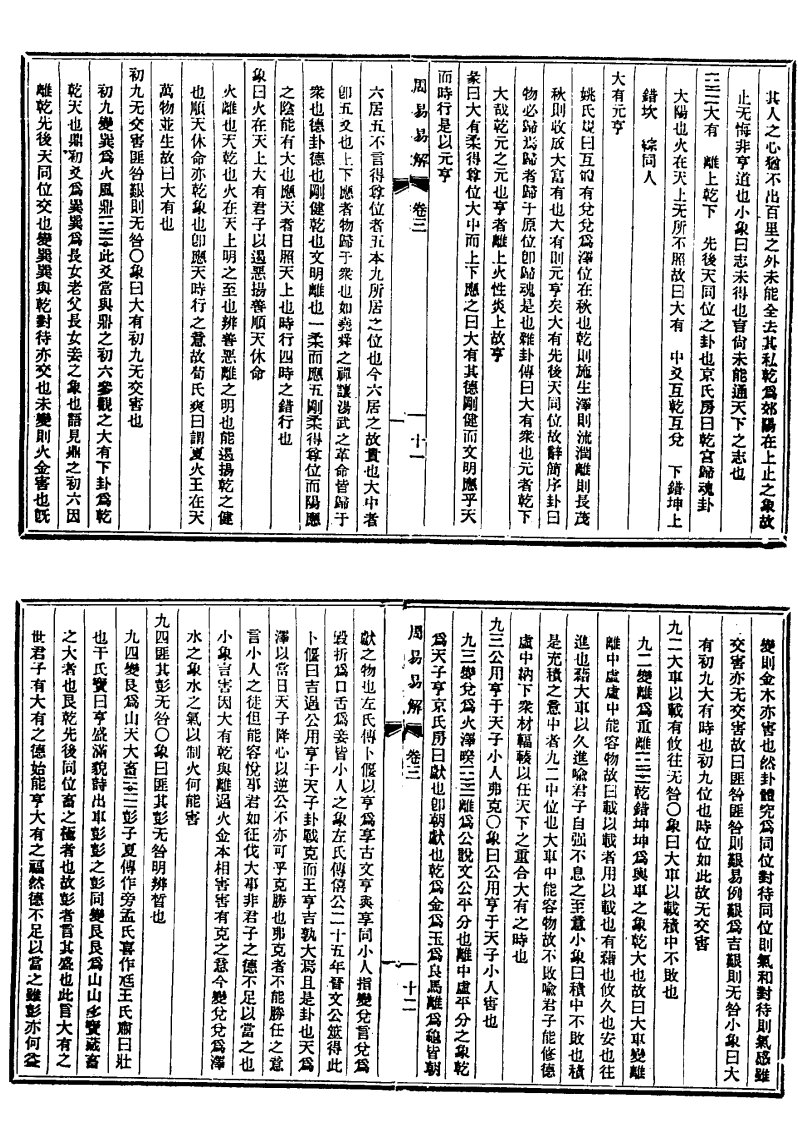 其人之心猶不出百里之外未能全去其私乾爲郊陽在上止之象故
止无悔非亨道也小象曰志未得也言尙未能通天下之志也
大有　離上乾下　先後天同位之卦也京氏房曰乾宮歸魂卦
大陽也火在天上无所不照故曰大有　中爻互乾互兌　下錯坤上
錯坎　綜同人
大有元亨
姚氏規曰互體有兌兌爲澤位在秋也乾則施生澤則流潤離則長茂
秋則收成大富有也大有則元亨矣大有先後天同位故辭簡序卦曰
物必歸焉歸者歸于原位卽歸魂是也雜卦傳曰大有衆也元者乾下
大哉乾元之元也亨者離上火性炎上故亨
彖曰大有柔得尊位大中而上下應之曰大有其德剛健而文明應乎天
而時行是以元亨
周易易解　卷三　十一
六居五不言得尊位者五本九所居之位也今六居之故貴也大中者
卽五爻也上下應者物歸于衆也如堯舜之禪讓湯武之革命皆歸于
衆也德卦德也剛健乾也文明離也一柔而應五剛柔得尊位而陽應
之陰能有大也應天者日照天上也時行四時之錯行也
象曰火在天上大有君子以遏惡揚善順天休命
火離也天乾也火在天上明之至也辨善惡離之明也能遏揚乾之健
也順天休命亦乾象也卽應天時行之意故荀氏爽曰謂夏火王在天
萬物並生故曰大有也
初九无交害匪咎艱則无咎〇象曰大有初九无交害也
初九變巽爲火風鼎此爻當與鼎之初六參觀之大有下卦爲乾
乾天也鼎初爻爲巽巽爲長女老父長女妾之象也語見鼎之初六因
離乾先後天同位交也變巽巽與乾對待亦交也未變則火金害也旣
變則金木亦害也然卦體究爲同位對待同位則氣和對待則氣感雖
交害亦无交害故曰匪咎匪咎則艱易例艱爲吉艱則无咎小象曰大
有初九大有時也初九位也時位如此故无交害
九二大車以載有攸往无咎〇象曰大車以載積中不敗也
九二變離爲重離乾錯坤坤爲輿車之象乾大也故曰大車變離
離中虛虛中能容物故曰載以載者用以載也有藉也攸久也安也往
進也藉大車以久進喩君子自强不息之至意小象曰積中不敗也積
是充積之意中者九二中位也大車中能容物故不敗喩君子能修德
虛中納下衆材輻輳以任天下之重合大有之時也
九三公用亨于天子小人弗克〇象曰公用亨于天子小人害也
九三變兌爲火澤睽離爲公說文公平分也離中虛平分之象乾
爲天子亨京氏房曰獻也卽朝獻也乾爲金爲玉爲良馬離爲龜皆朝
周易易解　卷三　十二
獻之物也左氏傳卜偃以亨爲享古文亨與享同小人指變兌言兌爲
毀折爲口舌爲妾皆小人之象左氏傳僖公二十五年晉文公筮得此
卜偃曰吉遇公用亨于天子卦戰克而王亨吉孰大焉且是卦也天爲
澤以當日天子降心以逆公不亦可乎克勝也弗克者不能勝任之意
言小人之徒但能容悅事君如征伐大事非君子之德不足以當之也
小象言害因大有乾與離遇火金本相害害有克之意今變兌兌爲澤
水之象水之氣以制火何能害
九四匪其彭无咎〇象曰匪其彭无咎明辨晢也
九四變艮爲山天大畜彭子夏傳作旁孟氏喜作尫王氏肅曰壯
也干氏寶曰亨盛滿貌詩出車彭彭之彭同變艮艮爲山山多寶藏畜
之大者也艮乾先後同位畜之極者也故彭者言其盛也此言大有之
世君子有大有之德始能亨大有之福然德不足以當之雖彭亦何益